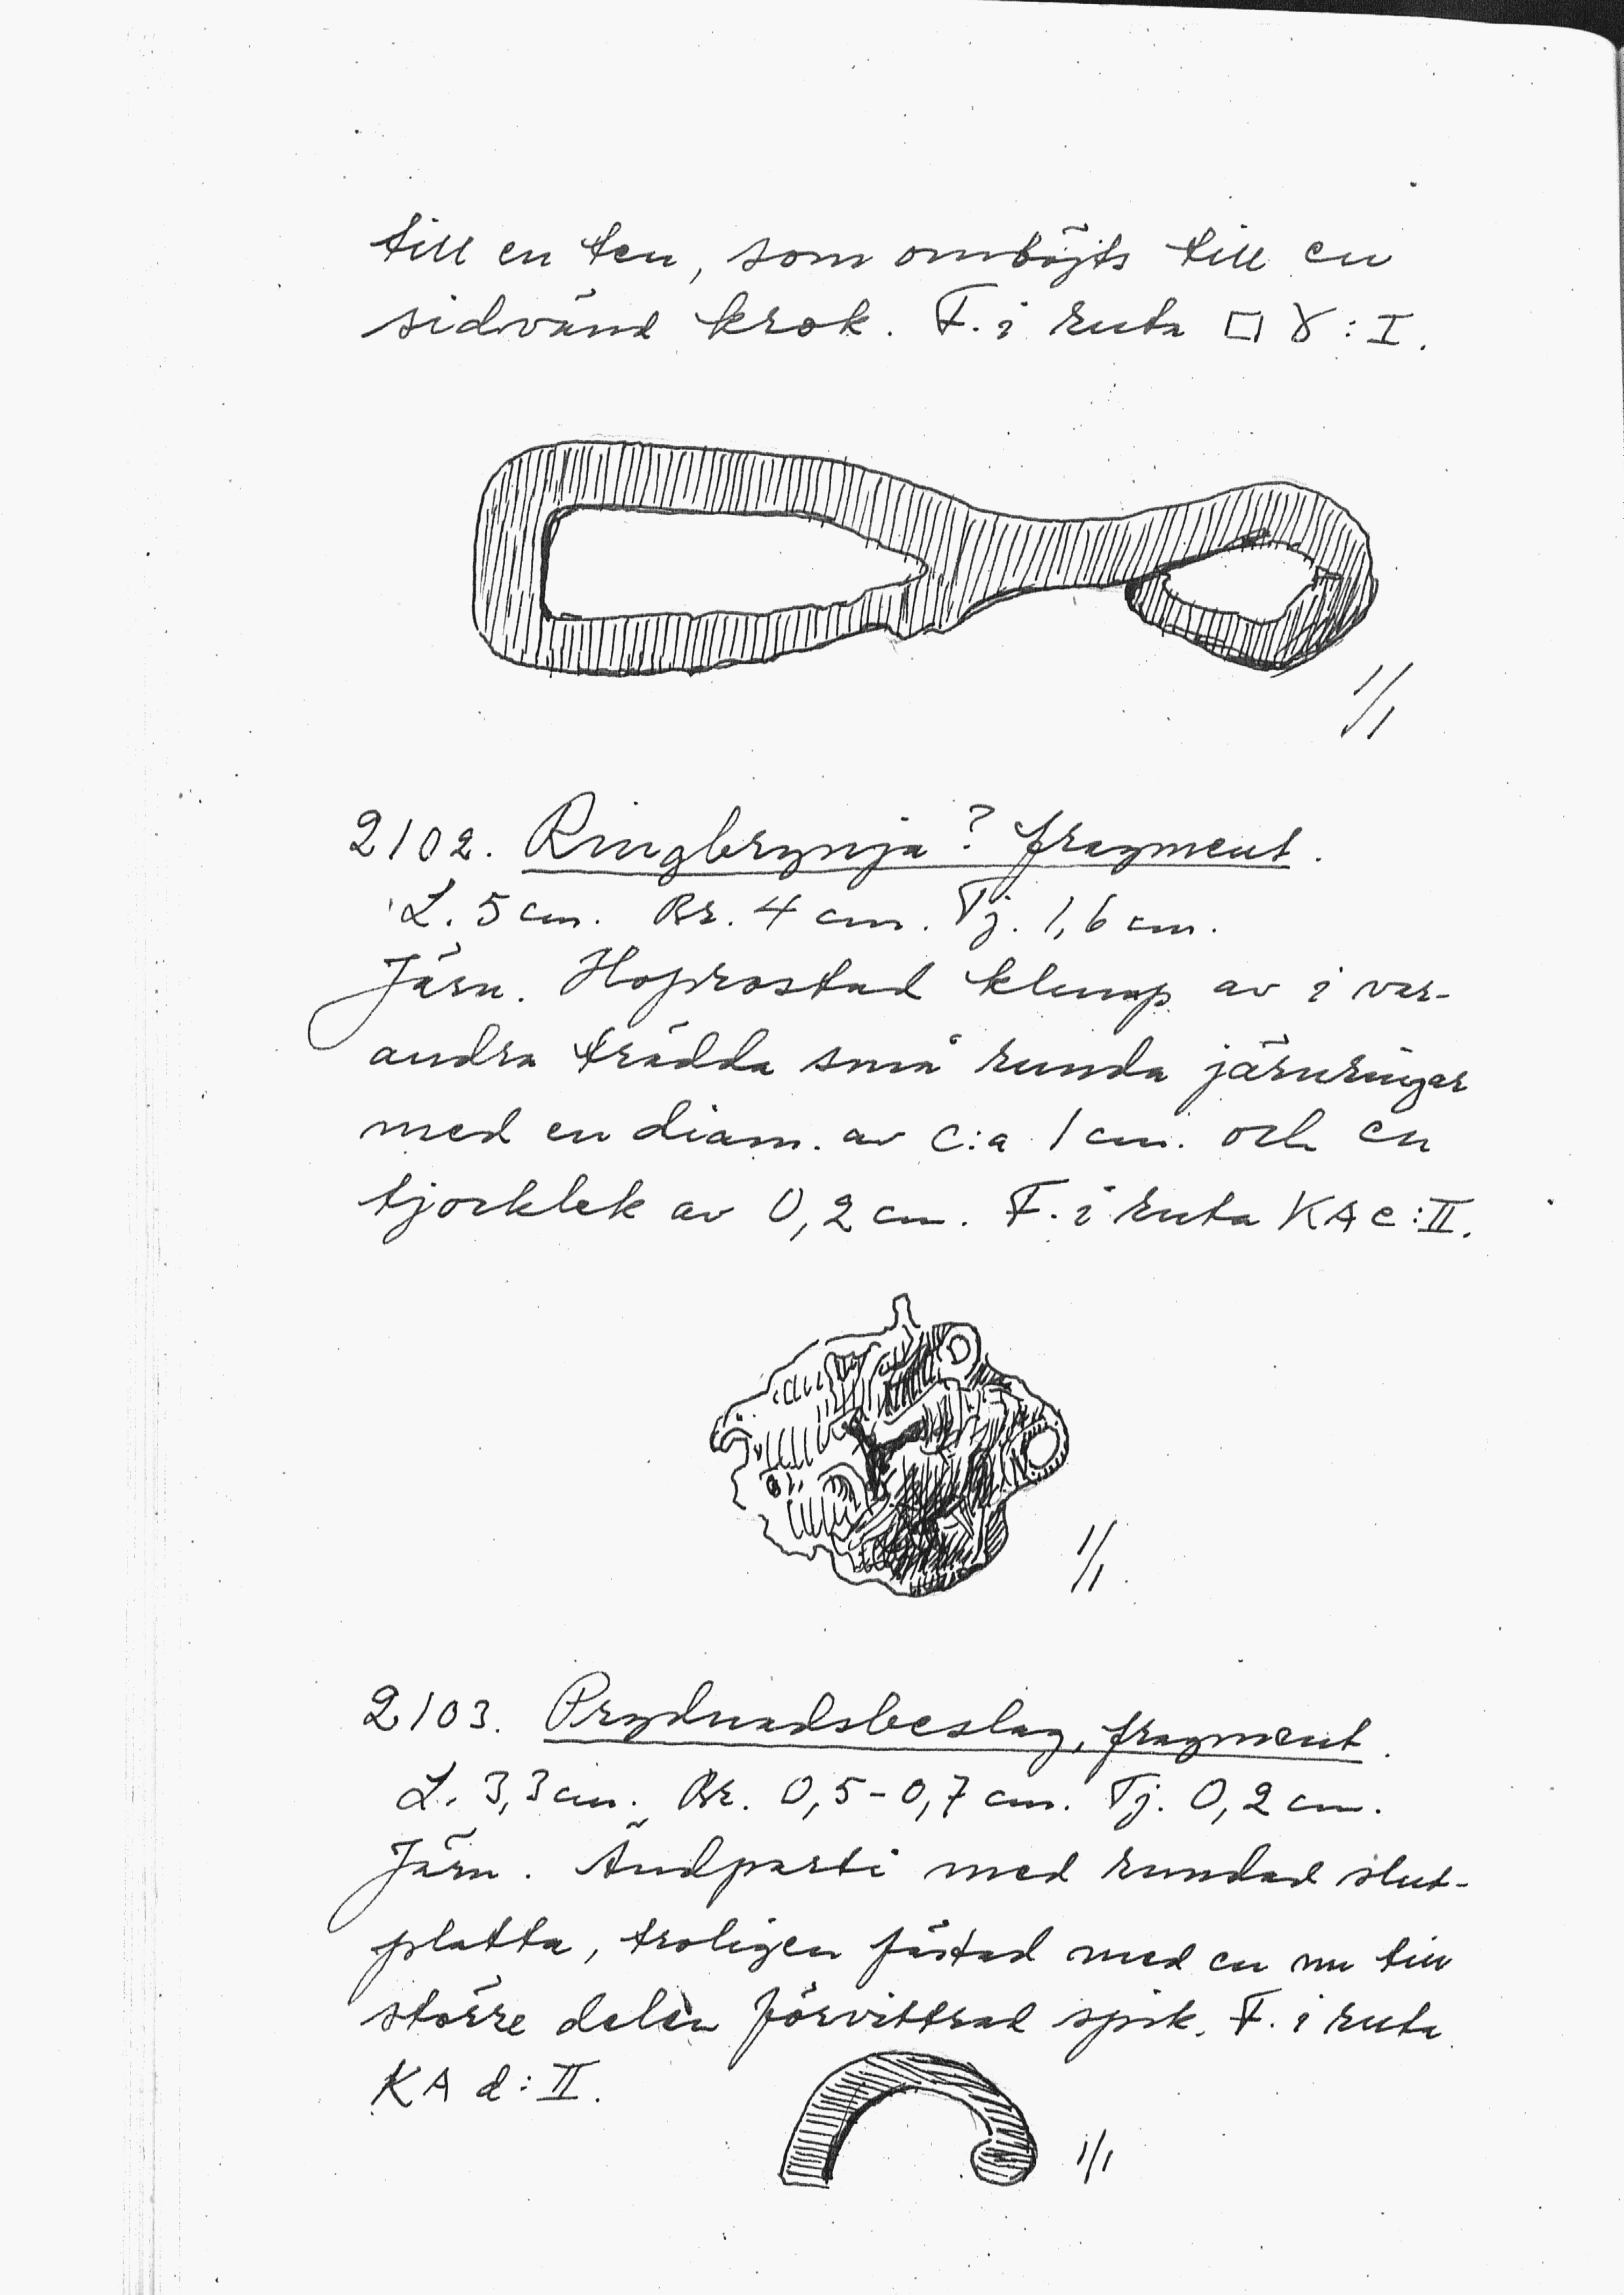 till en ten, som omböjts till en
sidvänd krok. F. i ruta □ γ : I.
1/1
2102. Ringbrynja? fragment.
L. 5 cm. Br. 4 cm. Tj. 1,6 cm.
Järn. Hoprostad klump av i var-
andra trädda små runda järnringar
med en diam. av c:a 1 cm. och en
tjocklek av 0,2 cm. F. i ruta KA e : II.
1/1.
2103. Prydnadsbeslag, fragment.
L. 3,3 cm. Br. 0,5-0,7 cm. Tj. 0,2 cm.
Järn. Ändparti med rundad slut-
platta, troligen fästad med en nu till
större delen förvittrad spik. F. i ruta
KA d : II.
1/1